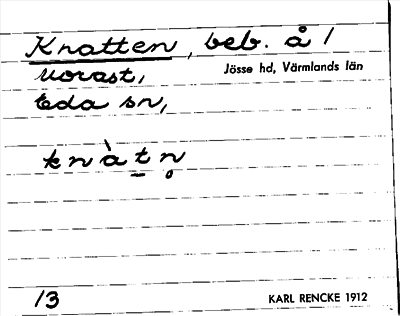 Knatten, beb. å 1
Morast,
Jösse hd, Värmlands län
Eda sn,
knàtn̥
13
KARL RENCKE 1912